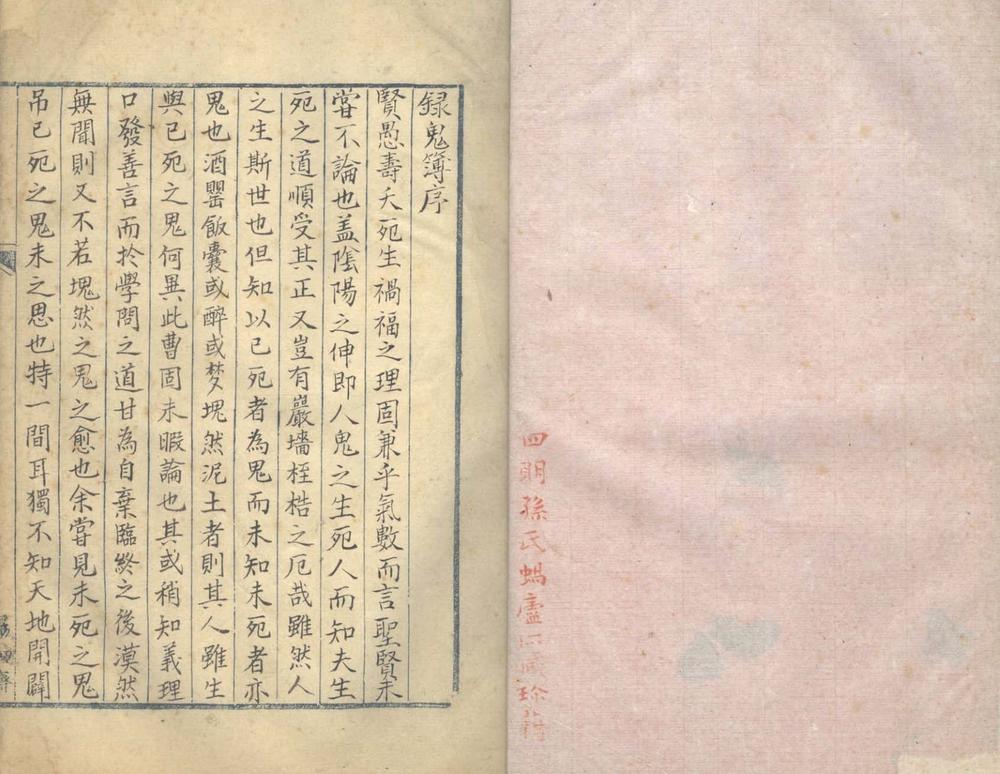 四明孫氏蝸廬所藏珍籍
録鬼簿序
賢愚壽夭死生禍福之理固兼乎氣數而言聖賢未
甞不論也盖隂陽之伸即人鬼之生死人而知夫生
死之道順受其正又豈有巖墻桎梏之厄哉雖然人
之生斯世也但知以已死者為鬼而未知未死者亦
鬼也酒甖飯囊或醉或梦塊然泥土者則其人雖生
與已死之鬼何異此曹固未暇論也其或稍知義理
口發善言而扵學問之道甘為自棄臨終之後漠然
無聞則又不若塊然之鬼之愈也余甞見未死之鬼
吊已死之鬼未之思也特一間耳獨不知天地開闢